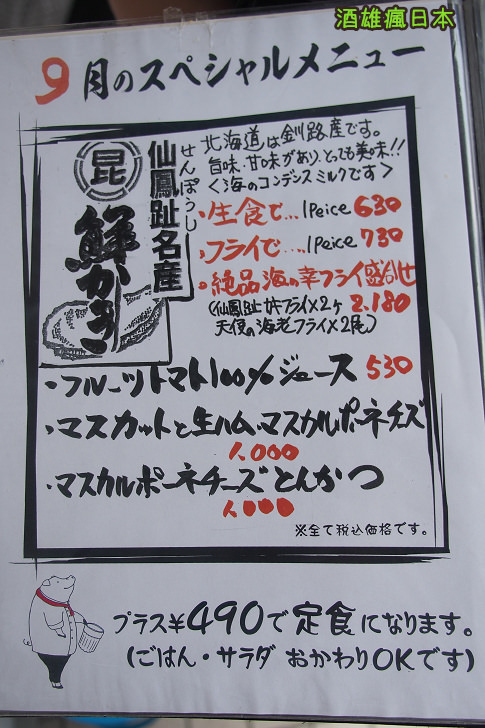 酒雄瘋日本
9月のスペシャルメニュー
昆
仙鳳趾名産
せんぽうし
鮮かき
北海道は釧路産です。
旨味・甘味があり、とっても美味!!
<海のコンデンスミルクです>
・生食で…1Peice 630
・フライで…1Peice 730
・絶品海の幸フライ盛合せ
(仙鳳趾カキフライ×2ヶ 2.180
天使の海老フライ×2尾)
・フルーツトマト100%ジュース 530
・マスカットと生ハム、マスカルポーネチーズ
1.000
・マスカルポーネチーズとんかつ
1.000
※全て税込価格です。
プラス¥490で定食になります。
(ごはん・サラダ おかわりOKです)